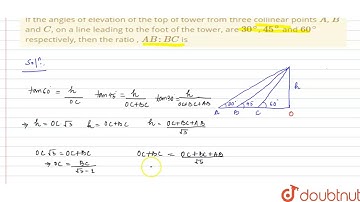 If the angles of elevation of the top of tower from three collinear points A, B
and C, on a line leading to the foot of the tower, are 30°, 45° and 60°
respectively, then the ratio , AB : BC is
Solⁿ.
tan60° = h/OC tan45° = h/OC+BC tan30 = h/OC+BC+AB
⇒ h = OC √3 h = OC+BC h = OC+BC+AB/√3
OC √3 = OC+BC OC+BC = OC+BC+AB/√3
⇒ OC = BC/√3-1
h
30° 45 60°
A B C O
doubtnut